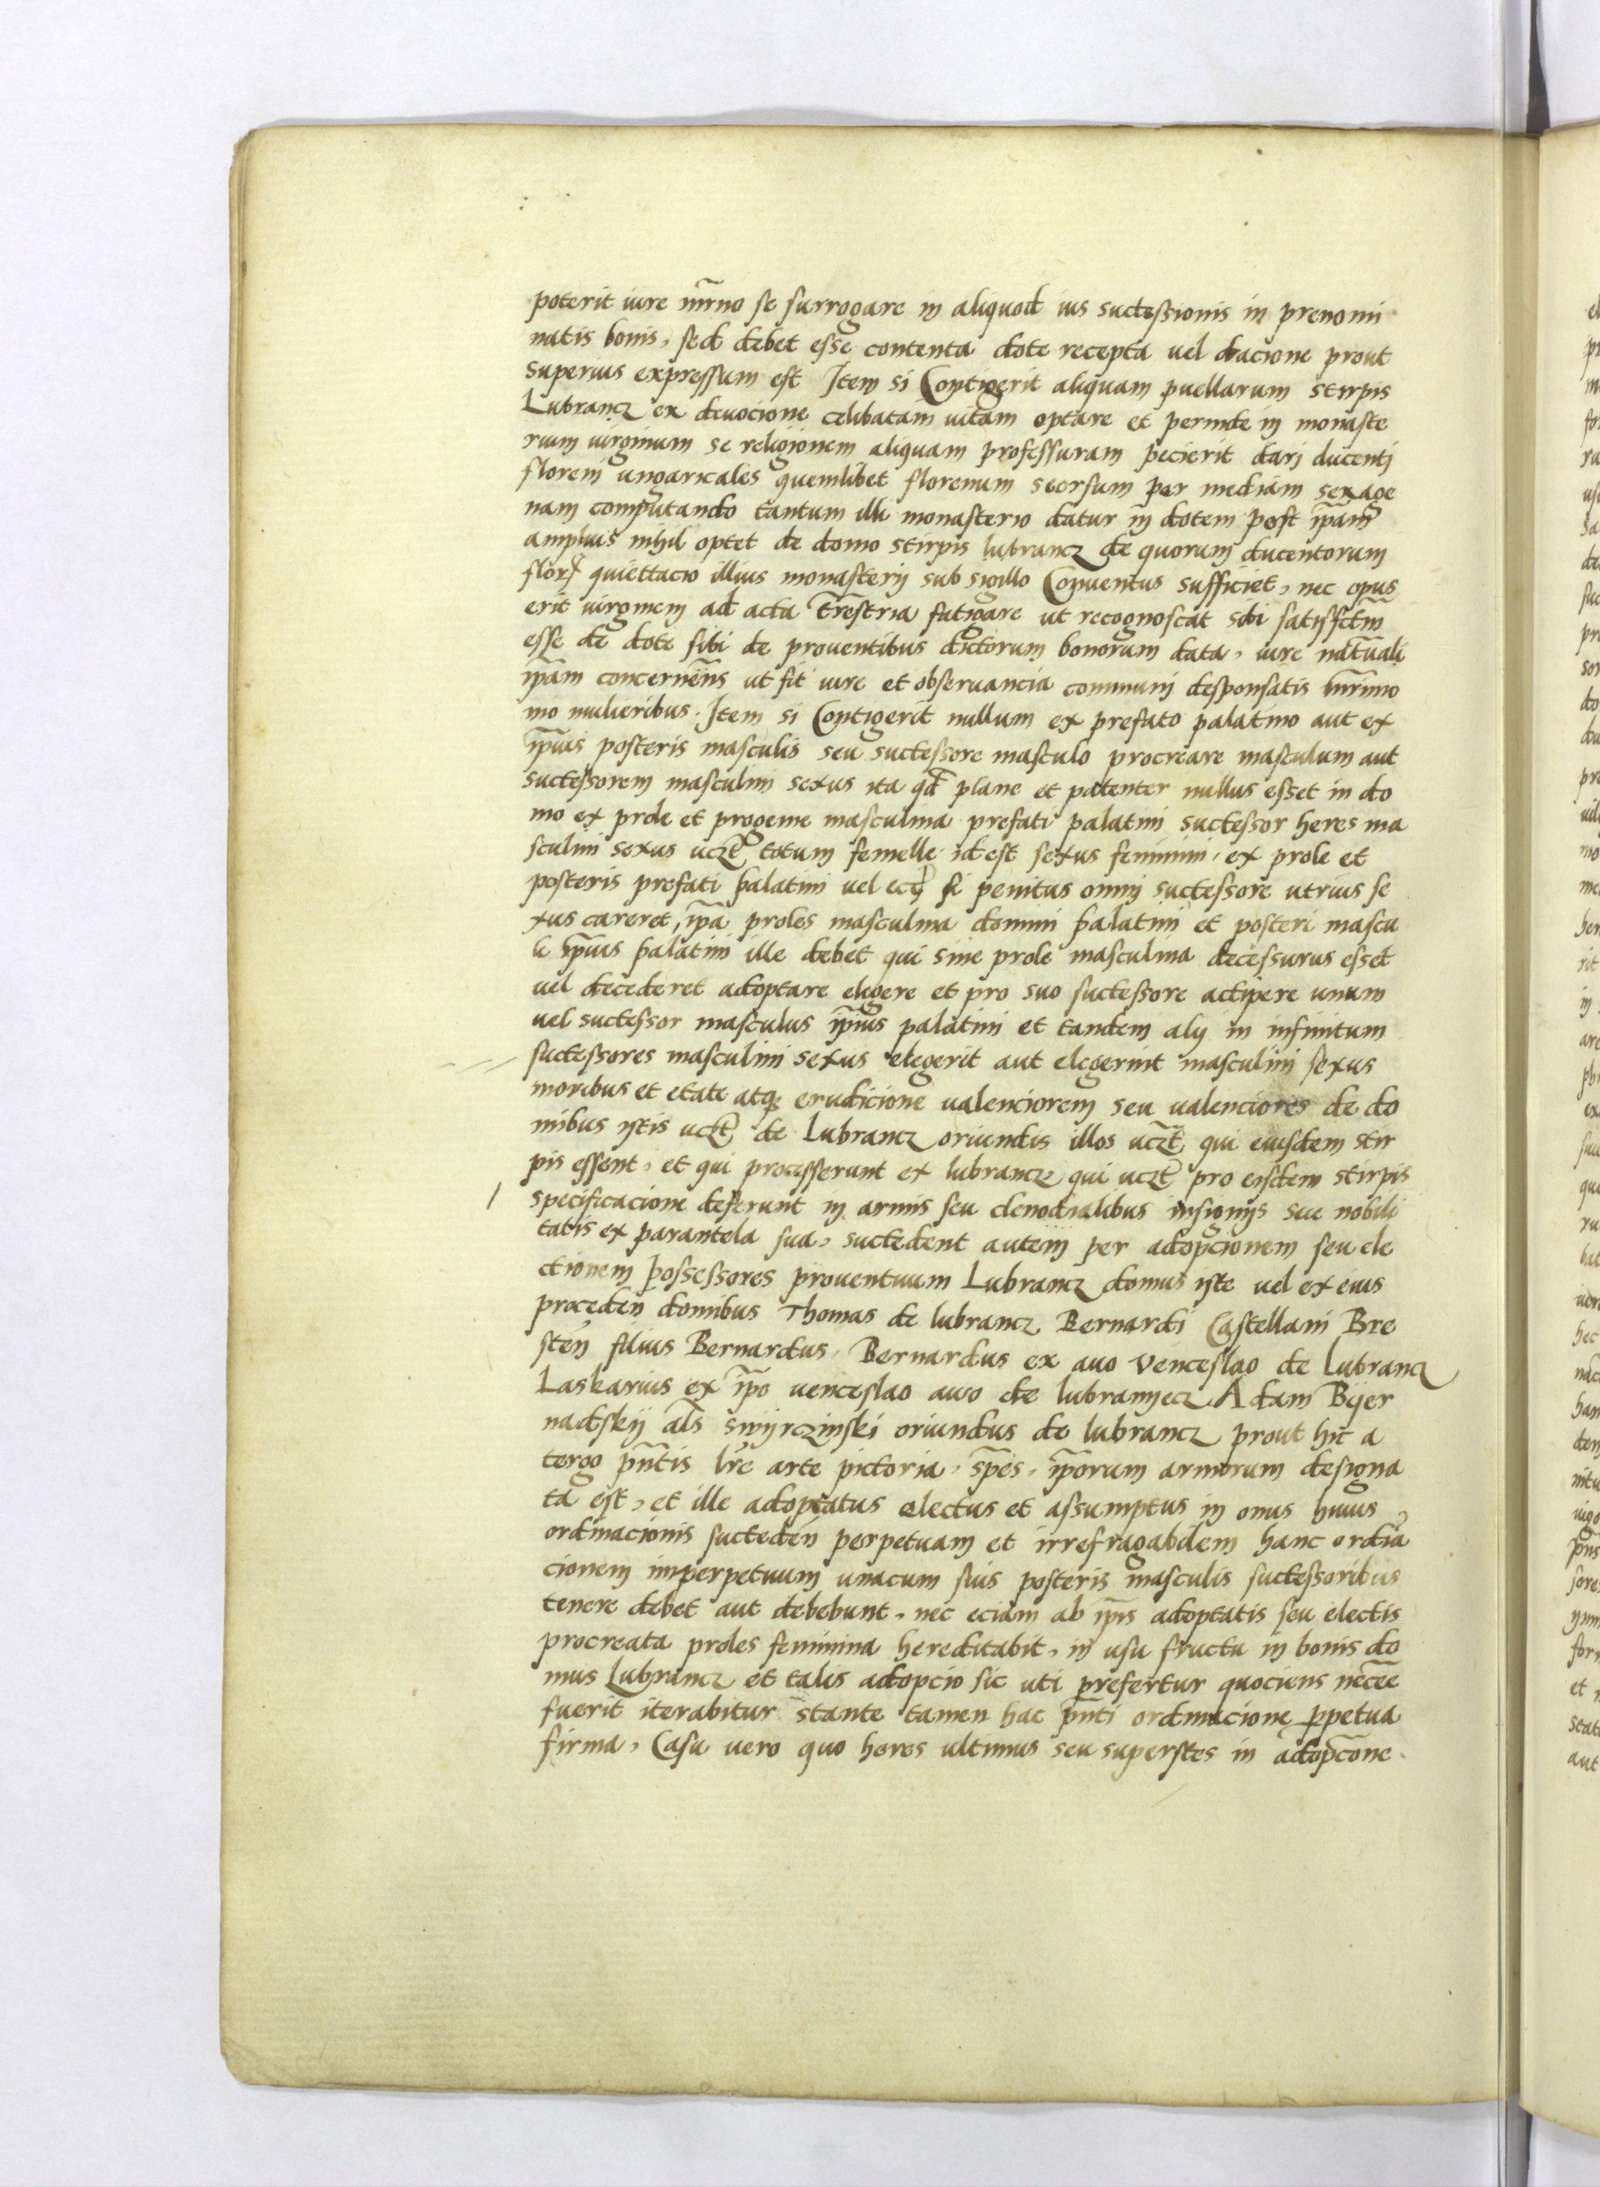 poterit iure mr̃no se surrogare in aliquod ius successionis in prenomi
natis bonis, sed debet esse contenta dote recepta uel dacione prout
superius expressum est Item si Contigerit aliquam puellarum stirpis
Lubrancz ex deuocione celibatam uitam optare et perinde in monaste
rium uirginum se religionem aliquam professuram pecierit dari ducenti
floreni ungaricales quemlibet florenum seorsum per mediam sexage
nam computando tantum illi monasterio datur in dotem post ip̃am
amplius nihil optet de domo stirpis lubrancz de quorum ducentorum
flor quiettacio illius monasterij sub sigillo Conuentus sufficiet, nec opus
erit uirginem ad acta tr̃estria fatigare ut recognoscat sibi satisfctm̃
esse de dote sibi de prouentibus dictorum bonorum data, iure nat̃uali
ip̃am concernen̄s ut fit iure et obseruancia communi desponsatis
mo mulieribus. Item si Contigerit nullum ex prefato palatino aut ex
ip̃ius posteris masculis seu successore masculo procreare masculum aut
successorem masculini sexus ita qd̃ plane et patenter nullus esset in do
mo ex prole et progenie masculina prefati palatini successor heres ma
sculini sexus uczt̃ totum femelle id est sexus feminini, ex prole et
posteris prefati palatini uel si penitus omni successore utrius se
xus careret, ip̃a proles masculina domini palatini et posteri mascu
li ip̃ius palatini ille debet qui sine prole masculina decessurus esset
uel decederet adoptare eligere et pro suo successore accipere unum
uel successor masculus ip̃ius palatini et tandem alij in infinitum
successores masculini sexus elegerit aut elegerint masculini sexus
moribus et etate atq erudicione ualenciorem seu ualenciores de do
mibus istis uczt̃ de Lubrancz oriundis illos uczt̃ qui eiusdem stir
pis essent, et qui processerunt ex lubrancz qui uczt̃ pro eisdem stirpis
specificacione deferunt in armis seu clenodialibus insignijs sue nobili
tatis ex parantela sua, succedent autem per adopcionem seu ele
ctionem possessores prouentuum Lubrancz domus iste uel ex eius
proceden domibus Thomas de lubrancz Bernardi Castellani Bre
sten filius Bernardus, Bernardus ex auo Venceslao de Lubrancz
Laskarius ex ip̃o uenceslao auo de lubranyecz Adam Byer
nadskij al̃s Swyrczinski oriundus de lubrancz prout hic a
tergo pn̄tis lr̃e arte pictoria, sp̃es, ip̃orum armorum designa
ta est, et ille adoptatus electus et assumptus in onus huius
ordinacionis succeden perpetuam et irrefragabilem hanc ordia
cionem imperpetuum unacum suis posteris masculis successoribus
tenere debet aut debebunt, nec eciam ab ip̃is adoptatis seu electis
procreata proles feminina hereditabit, in usu fructu in bonis do
mus Lubrancz et talis adopcio sic uti prefertur quociens neccẽe
fuerit iterabitur stante tamen hac pn̄ti ordinacione ꝑpetua
firma, Casu uero quo heres ultimus seu superstes in adopc̃one